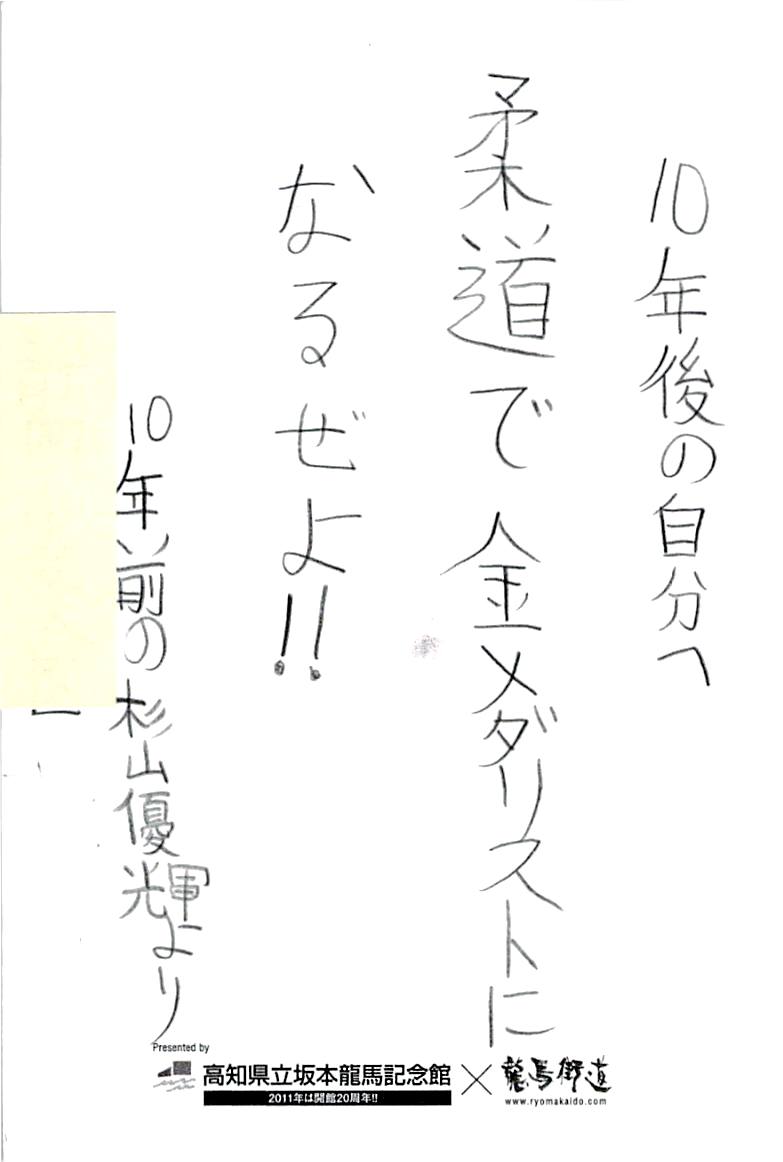 10年後の自分へ
柔道で金メダリストに
なるぜよ!!
10年前の杉山優輝より
Presented by
高知県立坂本龍馬記念館×龍馬街道
2011年は開館20周年!!
www.ryomakaido.com